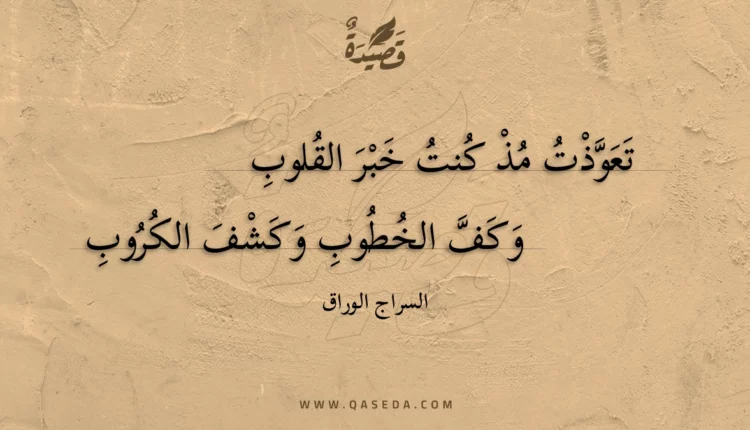 قَصِيْدَةٌ
تَعَوَّذْتُ مُذْ كُنتُ خَبْرَ القُلوبِ
وَكَفَّ الخُطُوبِ وَكَشْفَ الكُرُوبِ
السراج الوراق
WWW.QASEDA.COM